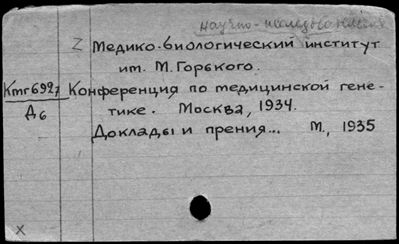 научно-исследовательский
Z Медико-биологический институт
им. М. Горького.
Кмг692, Конференция по медицинской гене-
Д6 тике. Москва, 1934.
Доклады и прения... М., 1935
x